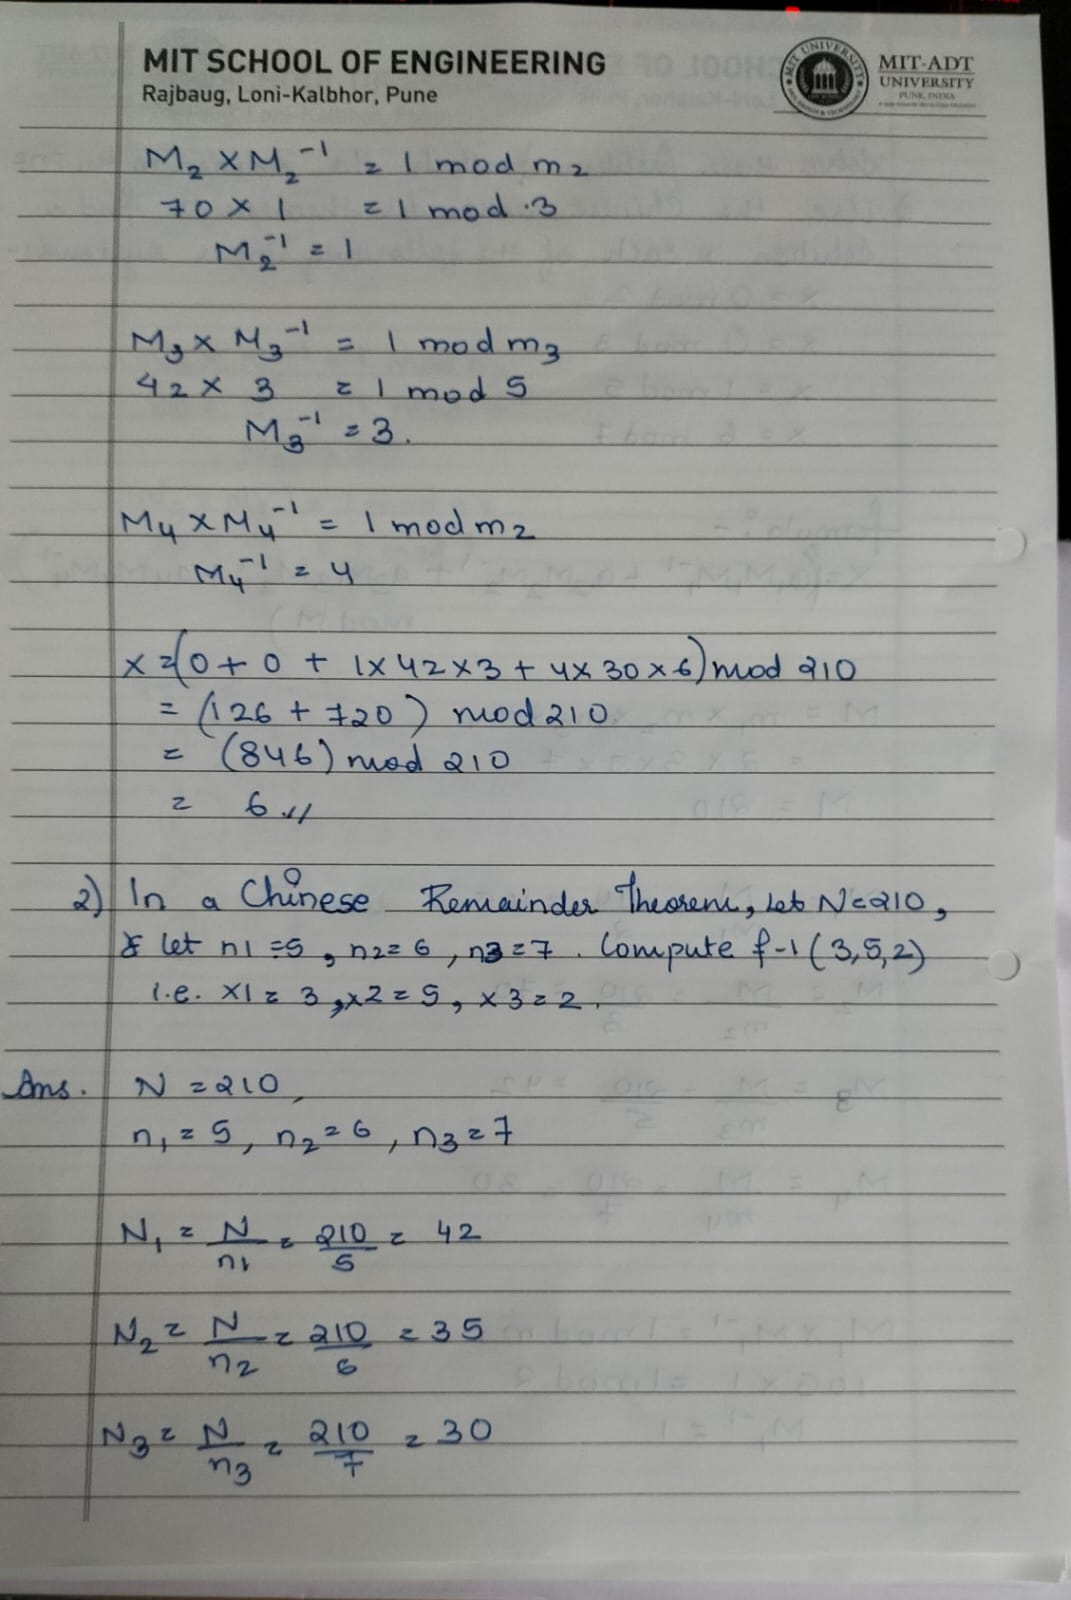 MIT SCHOOL OF ENGINEERING
Rajbaug, Loni-Kalbhor, Pune
MIT-ADT
UNIVERSITY
PUNE, INDIA
M₂ × M₂⁻¹ = 1 mod m₂
70 × 1 = 1 mod 3
M₂⁻¹ = 1
M₃ × M₃⁻¹ = 1 mod m₃
42 × 3 = 1 mod 5
M₃⁻¹ = 3.
M₄ × M₄⁻¹ = 1 mod m₂
M₄⁻¹ = 4
x = (0 + 0 + 1×42×3 + 4×30×6) mod 210
= (126 + 720) mod 210
= (846) mod 210
= 6 //
2) In a Chinese Remainder Theorem, Let N=210,
& let n1=5, n2=6, n3=7. Compute f-1(3,5,2)
i.e. x1=3, x2=5, x3=2.
Ans. N = 210,
n₁ = 5, n₂ = 6, n₃ = 7
N₁ = N/n₁ = 210/5 = 42
N₂ = N/n₂ = 210/6 = 35
N₃ = N/n₃ = 210/7 = 30